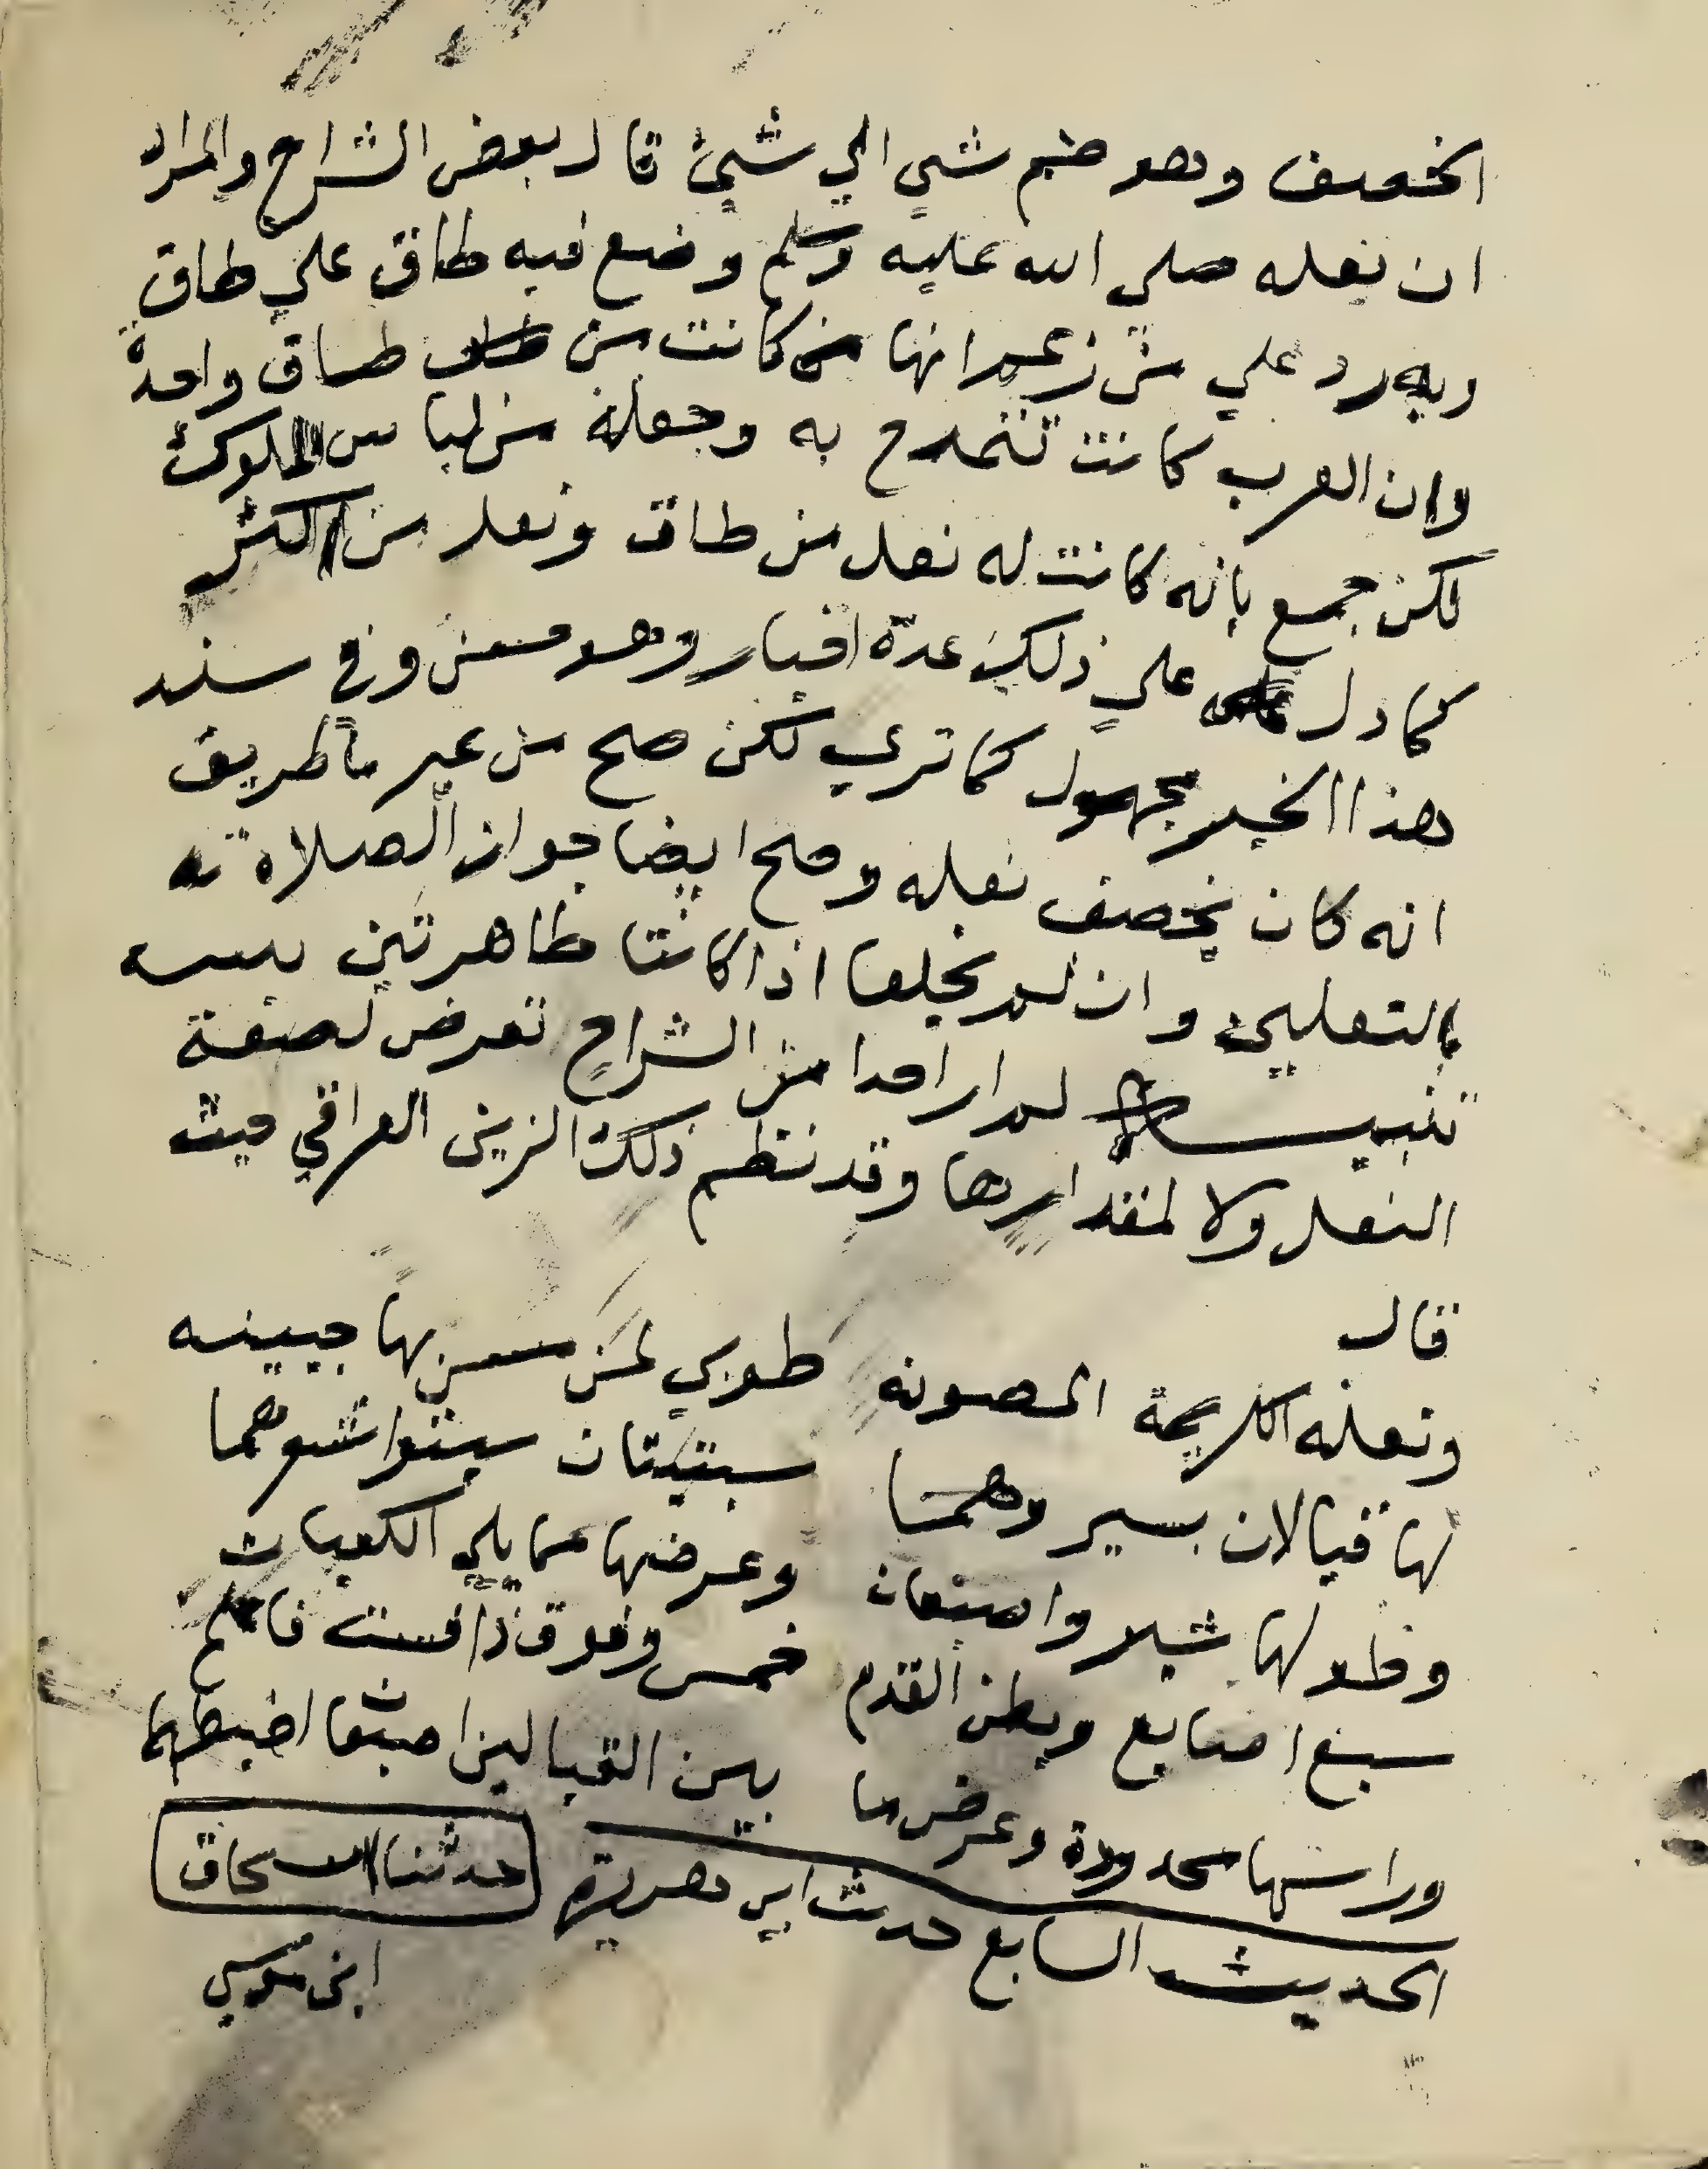 الخصف وهو ضم شي الي شيئ قال بعض الشراح والمراد
ان نعله صلى الله عليه وسلم وضع فيه طاق علي طاق
وبه رد علي من زعم انها كانت من طاق واحدة
وان العرب كانت تتمدح به وجعله من لباس الملوك
لكن جمع بانه كانت له نعل من طاق ونعل من اكثر
كما دل علي ذلك عدة اخبار وهو حسن وفي سند
هذا الخبر مجهول كما تري لكن صح من غير ما طريق
انه كان يخصف نعله وصح ايضا جواز الصلاة
بالنعلين وان لم يخلعا اذا كانتا طاهرتين
تنبيه لم ار احدا من الشراح تعرض لصفة
النعل ولا لمقدارها وقد نظم ذلك الزين العراقي حيث
قال
ونعله الكريمة المصونه طوبي لمن مس بها جبينه
لها قبالان بسير وهما سبتيتان سبتوا شعرهما
وطولها شبر واصبعان وعرضها مما يلي الكعبان
سبع اصابع وبطن القدم خمس وفوق ذا فست فاعلم
وراسها محدودة وعرض ما بين القبالين اصبعا اضبطهما
الحديث السابع حديث ابي هريرة حدثنا اسحاق
ابن موسي